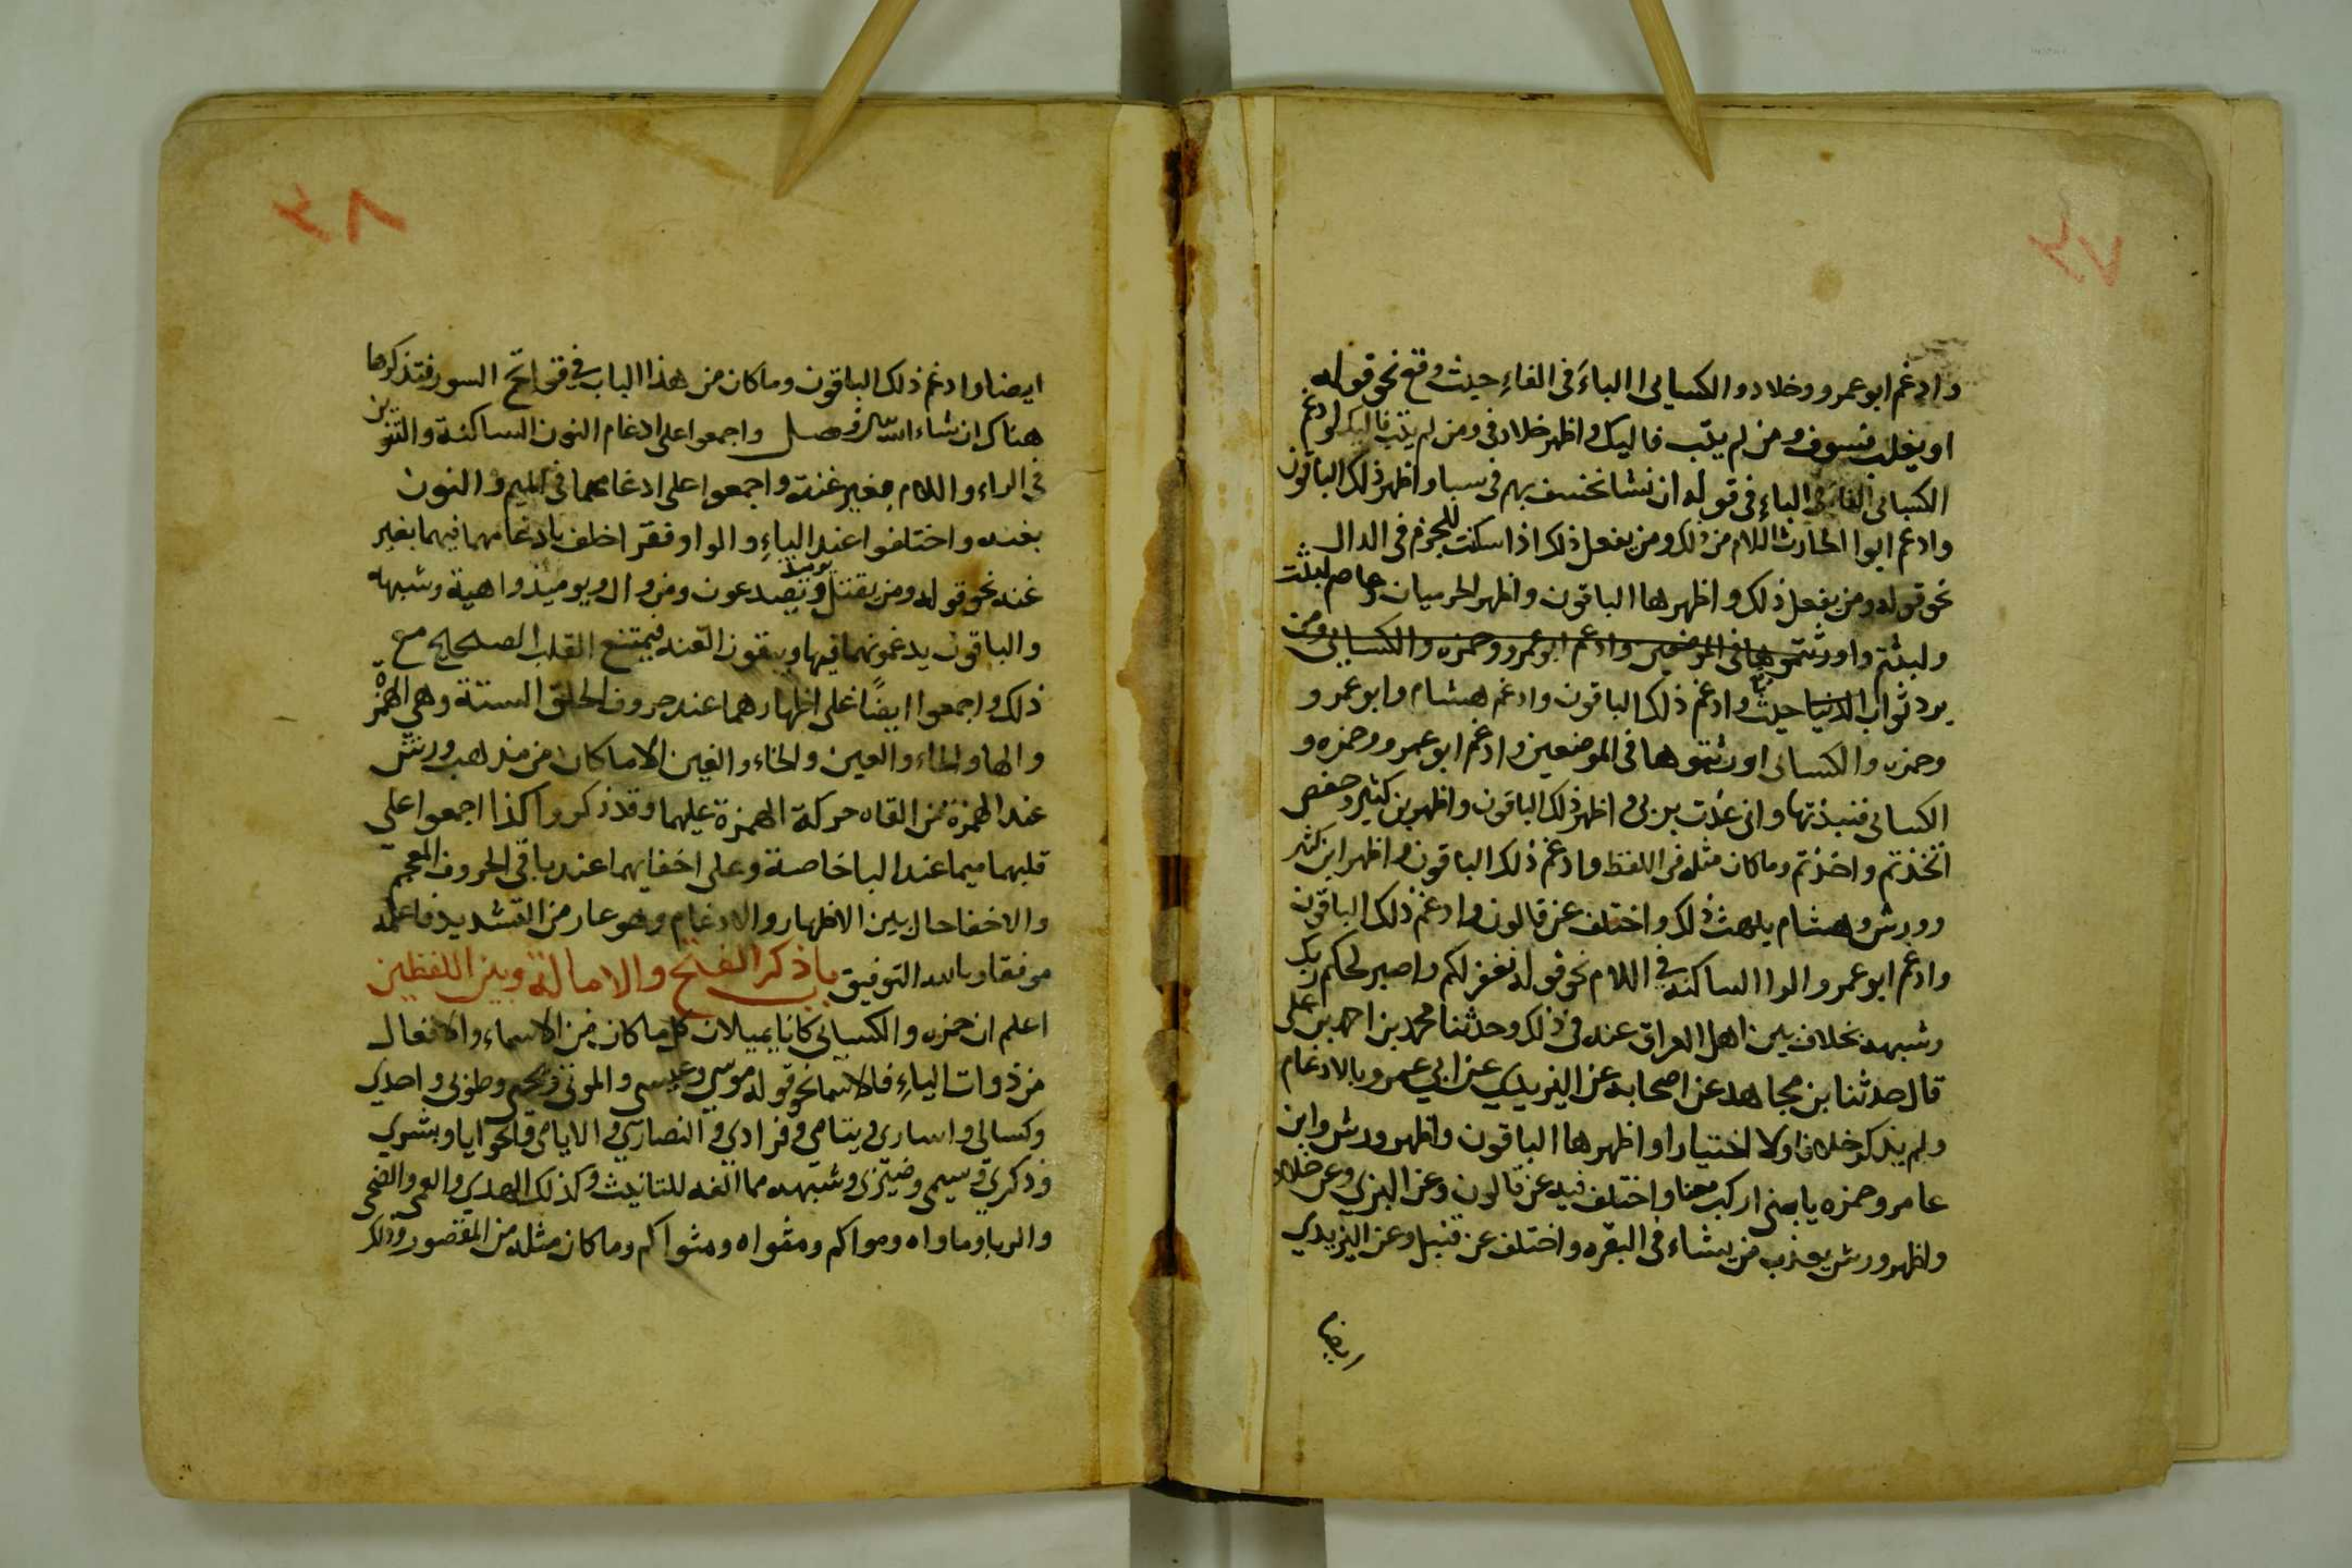 وادغم ابو عمرو وخلاد والكسايى الباءَ فى الفاءِ حيث وقع نحو قوله
او يغلب فسوف ومن لم يتب فاوليك واظهر خلاد فى ومن لم يتب فاوليك وادغم
الكسائى الفاءَ فى الباءِ فى قوله ان نشا نخسف بهم فى سبا واظهر ذلك الباقون
وادغم ابوا الحارث اللام من ذلك ومن يفعل ذلك اذا سكنت للجزم فى الدال
نحو قوله ومن يفعل ذلك واظهرها الباقون واظهر الحرميان وعاصم لبثت
ولبثتم واورثتموها فى الموضعين وادغم ابو عمرو وحمزه والكسائى ومن
يرد ثواب الدنيا حيث وادغم ذلك الباقون وادغم هشام وابو عمرو و
وحمزه والكسائى اورثتموها فى الموضعين وادغم ابو عمرو وحمزه و
الكسائى فنبذتها وانى عذت بربى واظهر ذلك الباقون واظهر بن كثير وحفص
اتخذتم واخذتم وماكان مثله فى اللفظ وادغم ذلك الباقون واظهر ابن كثير
وورش وهشام يلهث ذلك واختلف عن قالون وادغم ذلك الباقون
وادغم ابو عمرو الرا الساكنه فى اللام نحو قوله نغفر لكم واصبر لحكم ربك
وشبهه بخلاف بين اهل العراق عنه فى ذلك وحدثنا محمد بن احمد بن على
قال حدثنا بن مجاهد عن اصحابه عن اليزيدي عن ابي عمرو بالادغام
ولم يذكر خلافا ولا اختيارا واظهرها الباقون واظهر ورش وابن
عامر وحمزه يا بنى اركب معنا واختلف فيه عن قالون وعن البزي وعن خلاد
واظهر ورش يعذب من يشاء فى البقره واختلف عن قنبل وعن اليزيدي
ايضا
ايضا وادغم ذلك الباقون وماكان من هذا الباب فى فواتح السور فتذكرها
هناك ان شاء الله فصل واجمعوا على ادغام النون الساكنة والتنوين
فى الراء واللام بغير غنة واجمعوا على ادغامهما فى الميم والنون
بغنه واختلفوا عند الياءِ والواو فقر اخلف بادغامهما فيهما بغير
غنه نحو قوله ومن يقتتل ويوميذ يصدعون ومن وال ويوميذ واهية وشبهه
والباقون يدغمونهما فيها ويبقون الغنه فيمتنع القلب الصحيح مع
ذلك واجمعوا ايضًا على اظهارهما عند حروف الحلق الستة وهي الهمزة
والها والحاء والعين والخاء والغين الا ماكان من مذهب ورش
عند الهمزة من القاه حركة الهمزة عليهما وقد ذكر واكذا اجمعوا علي
قلبهما ميما عند البا خاصة وعلى اخفايهما عند باقى الحروف المعجم
والاخفا حال بين الاظهار والادغام وهو عار من التشديد فاعلمه
موفقا وبالله التوفيق باب ذكر الفتح والامالة وبين اللفظين
اعلم ان حمزه والكسائى كانا يميلان كل ماكان من الاسماء والافعال
من ذوات الياءِ فالاسما نحو قوله موسي وعيسى والموتى ويحيى وطوبى واحدي
وكسالى واسارى ويتامى وفرادي والنصارى والايامى والحوايا وبشري
وذكري وسيمى وضيزى وشبهه مما الفه للتانيث وكذلك الهدي والعمى والضحى
والربا وماواه وماواكم ومثواه ومثواكم وماكان مثله من المقصور وكذلك